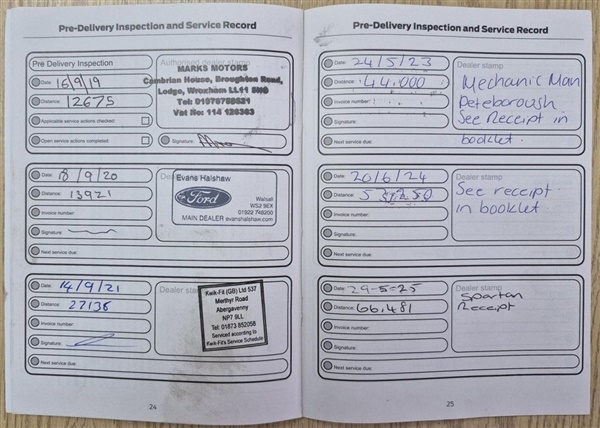 Pre-Delivery Inspection and Service Record
Pre Delivery Inspection
Authorised dealer stamp
Date: 16/9/19
MARKS MOTORS
Cambrian House, Broughton Road,
Lodge, Wrexham LL11
Distance: 12675
Applicable service actions checked:
Vat No: 114
Open service actions completed:
Signature:
Date: 18/9/20
Evans Halshaw
Ford
Walsall
WS2 9EX
01922 748200
MAIN DEALER evanshalshaw.com
Distance: 13921
Invoice number:
Signature:
Next service due:
Date: 14/9/21
Dealer stamp
Kwik-Fit (GB) Ltd 537
Merthyr Road
Abergavenny
NP7 9LL
Tel: 01873 852058
Serviced according to
Kwik-Fit's Service Schedule
Distance: 27136
Invoice number:
Signature:
Next service due:
24
Pre-Delivery Inspection and Service Record
Date: 24/5/23
Dealer stamp
Distance: 44,000
Invoice number:
Signature:
Next service due:
Mechanic Man
Peteborough
See Receipt in
booklet.
Date: 20/6/24
Dealer stamp
Distance:
Invoice number:
Signature:
Next service due:
See receipt
in booklet
Date: 29-5-25
Dealer stamp
Distance: 66,481
Invoice number:
Signature:
Next service due:
Spartan
Receipt
25